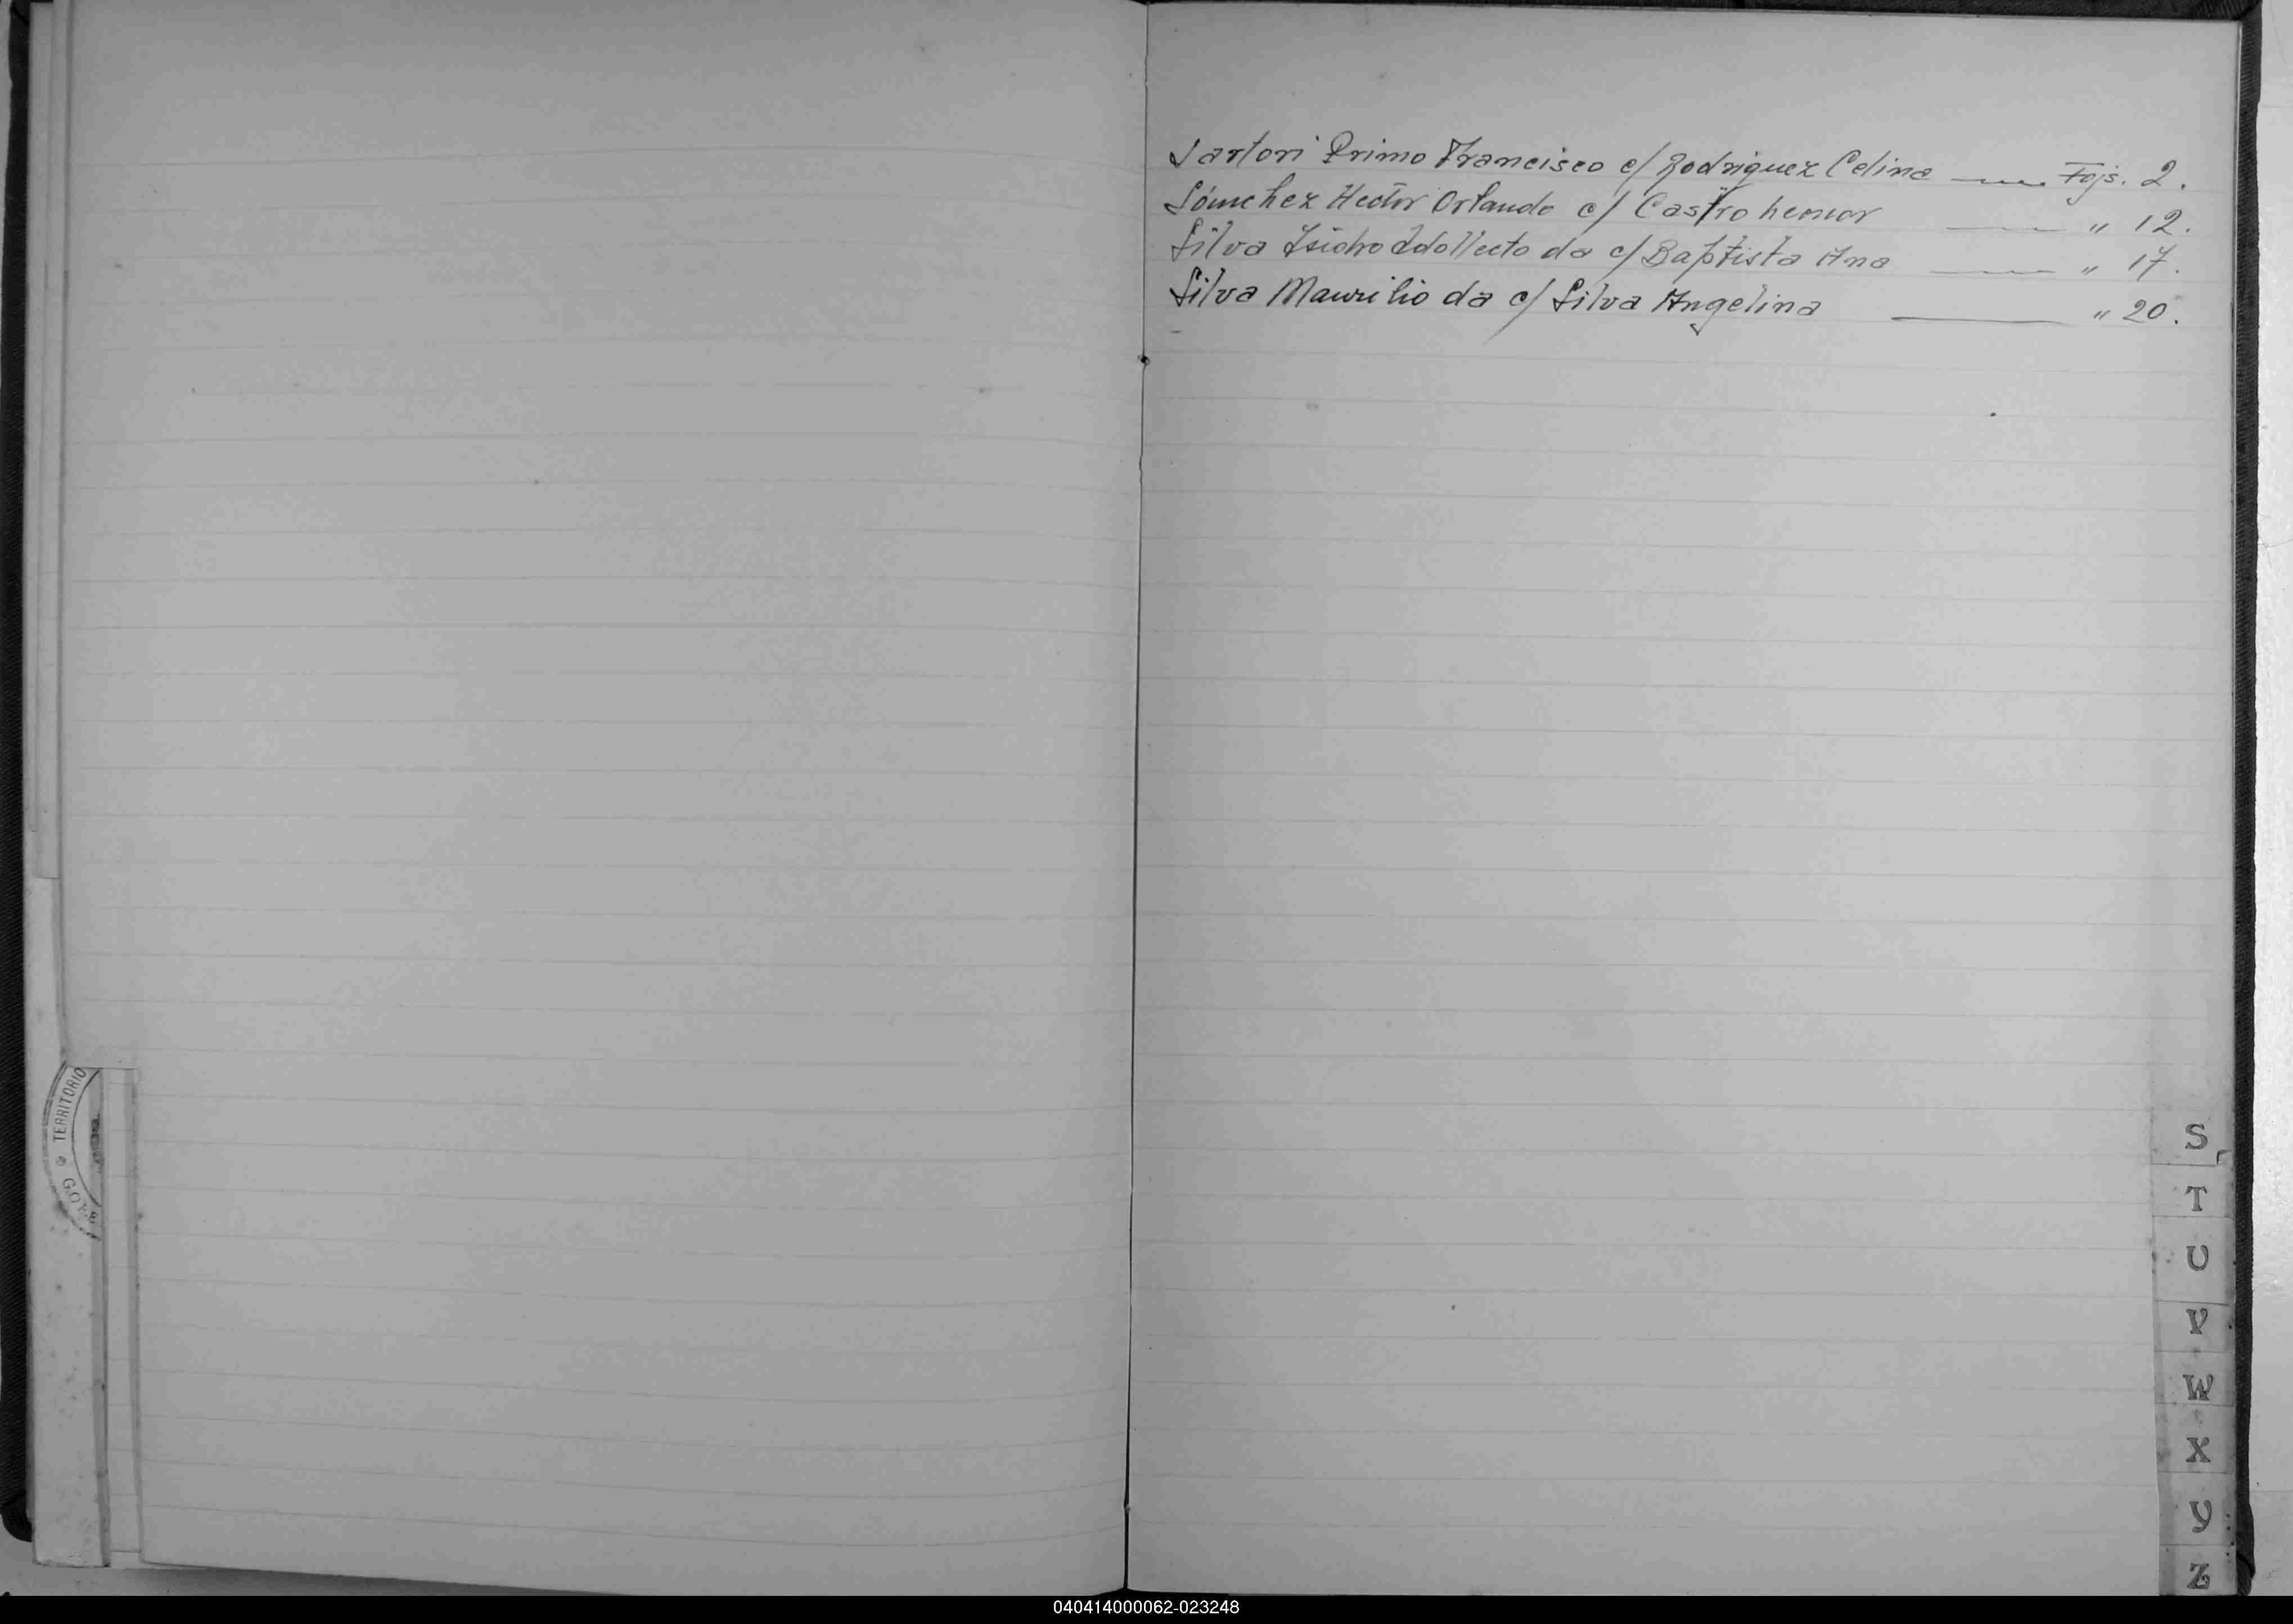 Sartori Primo Francisco c/ Rodriguez Celina — Fojs. 2.
Sánchez Hector Orlando c/ Castro — " 12.
Silva Isidro da c/ Baptista Ana — " 17.
Silva Maurilio da c/ Silva Angelina — " 20.
TERRITORIO
S
T
U
V
W
X
Y
Z
040414000062-023248